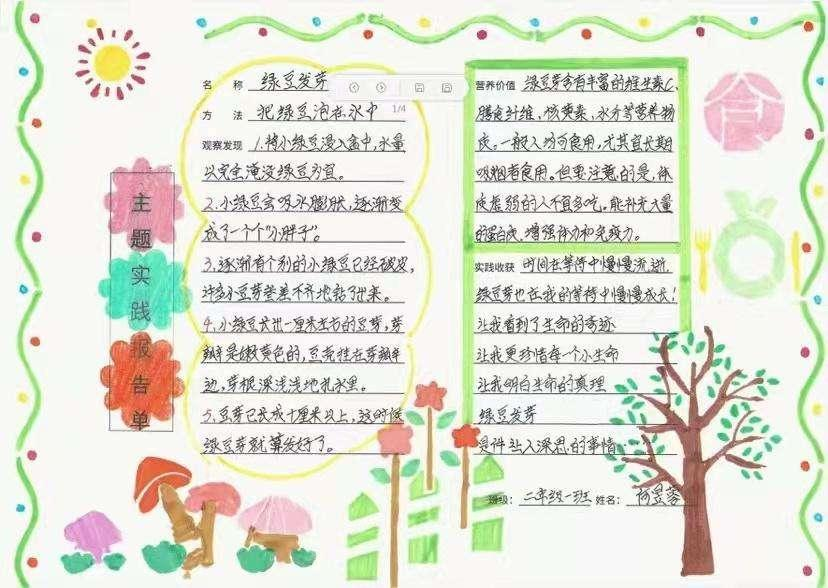 主题实践报告单
名 称 绿豆发芽
1/4
方 法 把绿豆泡在水中
观察发现 1.将小绿豆浸入盆中,水量
以完全淹没绿豆为宜。
2.小绿豆会吸水膨胀,逐渐变
成了一个个“小胖子”。
3.逐渐有个别的小绿豆已经破皮,
许多小豆芽参差不齐地钻了出来。
4.小绿豆长出一厘米左右的豆芽,芽
瓣是嫩黄色的,豆壳挂在芽瓣半
边,芽根深浅浅地扎水里。
5.豆芽已长成十厘米以上,这时候
绿豆芽就算发好了。
食
营养价值 绿豆芽含有丰富的维生素C、
膳食纤维,核黄素,水分等营养物
质。一般人均可食用,尤其宜长期
吸烟者食用。但要注意的是,体
质虚弱的人不宜多吃。能补充大量
的蛋白质,增强体力和免疫力。
实践收获 时间在等待中慢慢流逝,
绿豆芽也在我的等待中慢慢成长!
让我看到了生命的奇迹
让我更珍惜每一个小生命
让我明白生命的真理
绿豆发芽
是件让人深思的事情……
班级: 二年级一班 姓名: 何昱蓉